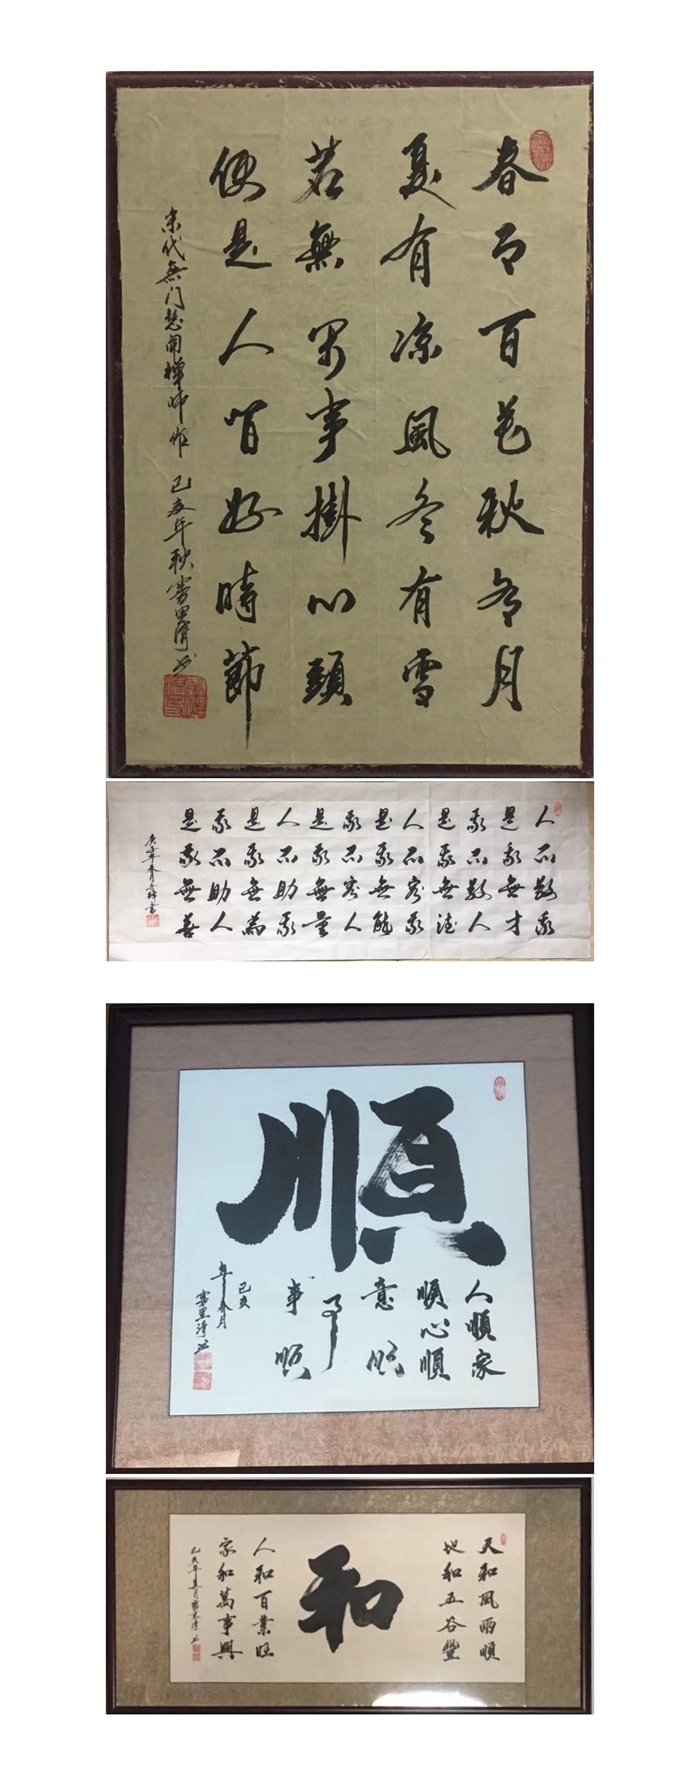 春有百花秋有月
夏有凉風冬有雪
若無闲事掛心頭
便是人间好時節
宋代無门慧開禅师作 己亥年秋
人不敬我
是我無才
我不敬人
是我無德
人不容我
是我無能
我不容人
是我無量
人不助我
是我無為
我不助人
是我無善
庚子年春月
順
人順家
順心順
意順
事
事順
己亥
年春月
天和風雨順
地和五谷豐
和
人和百業旺
家和萬事興
己亥年春月